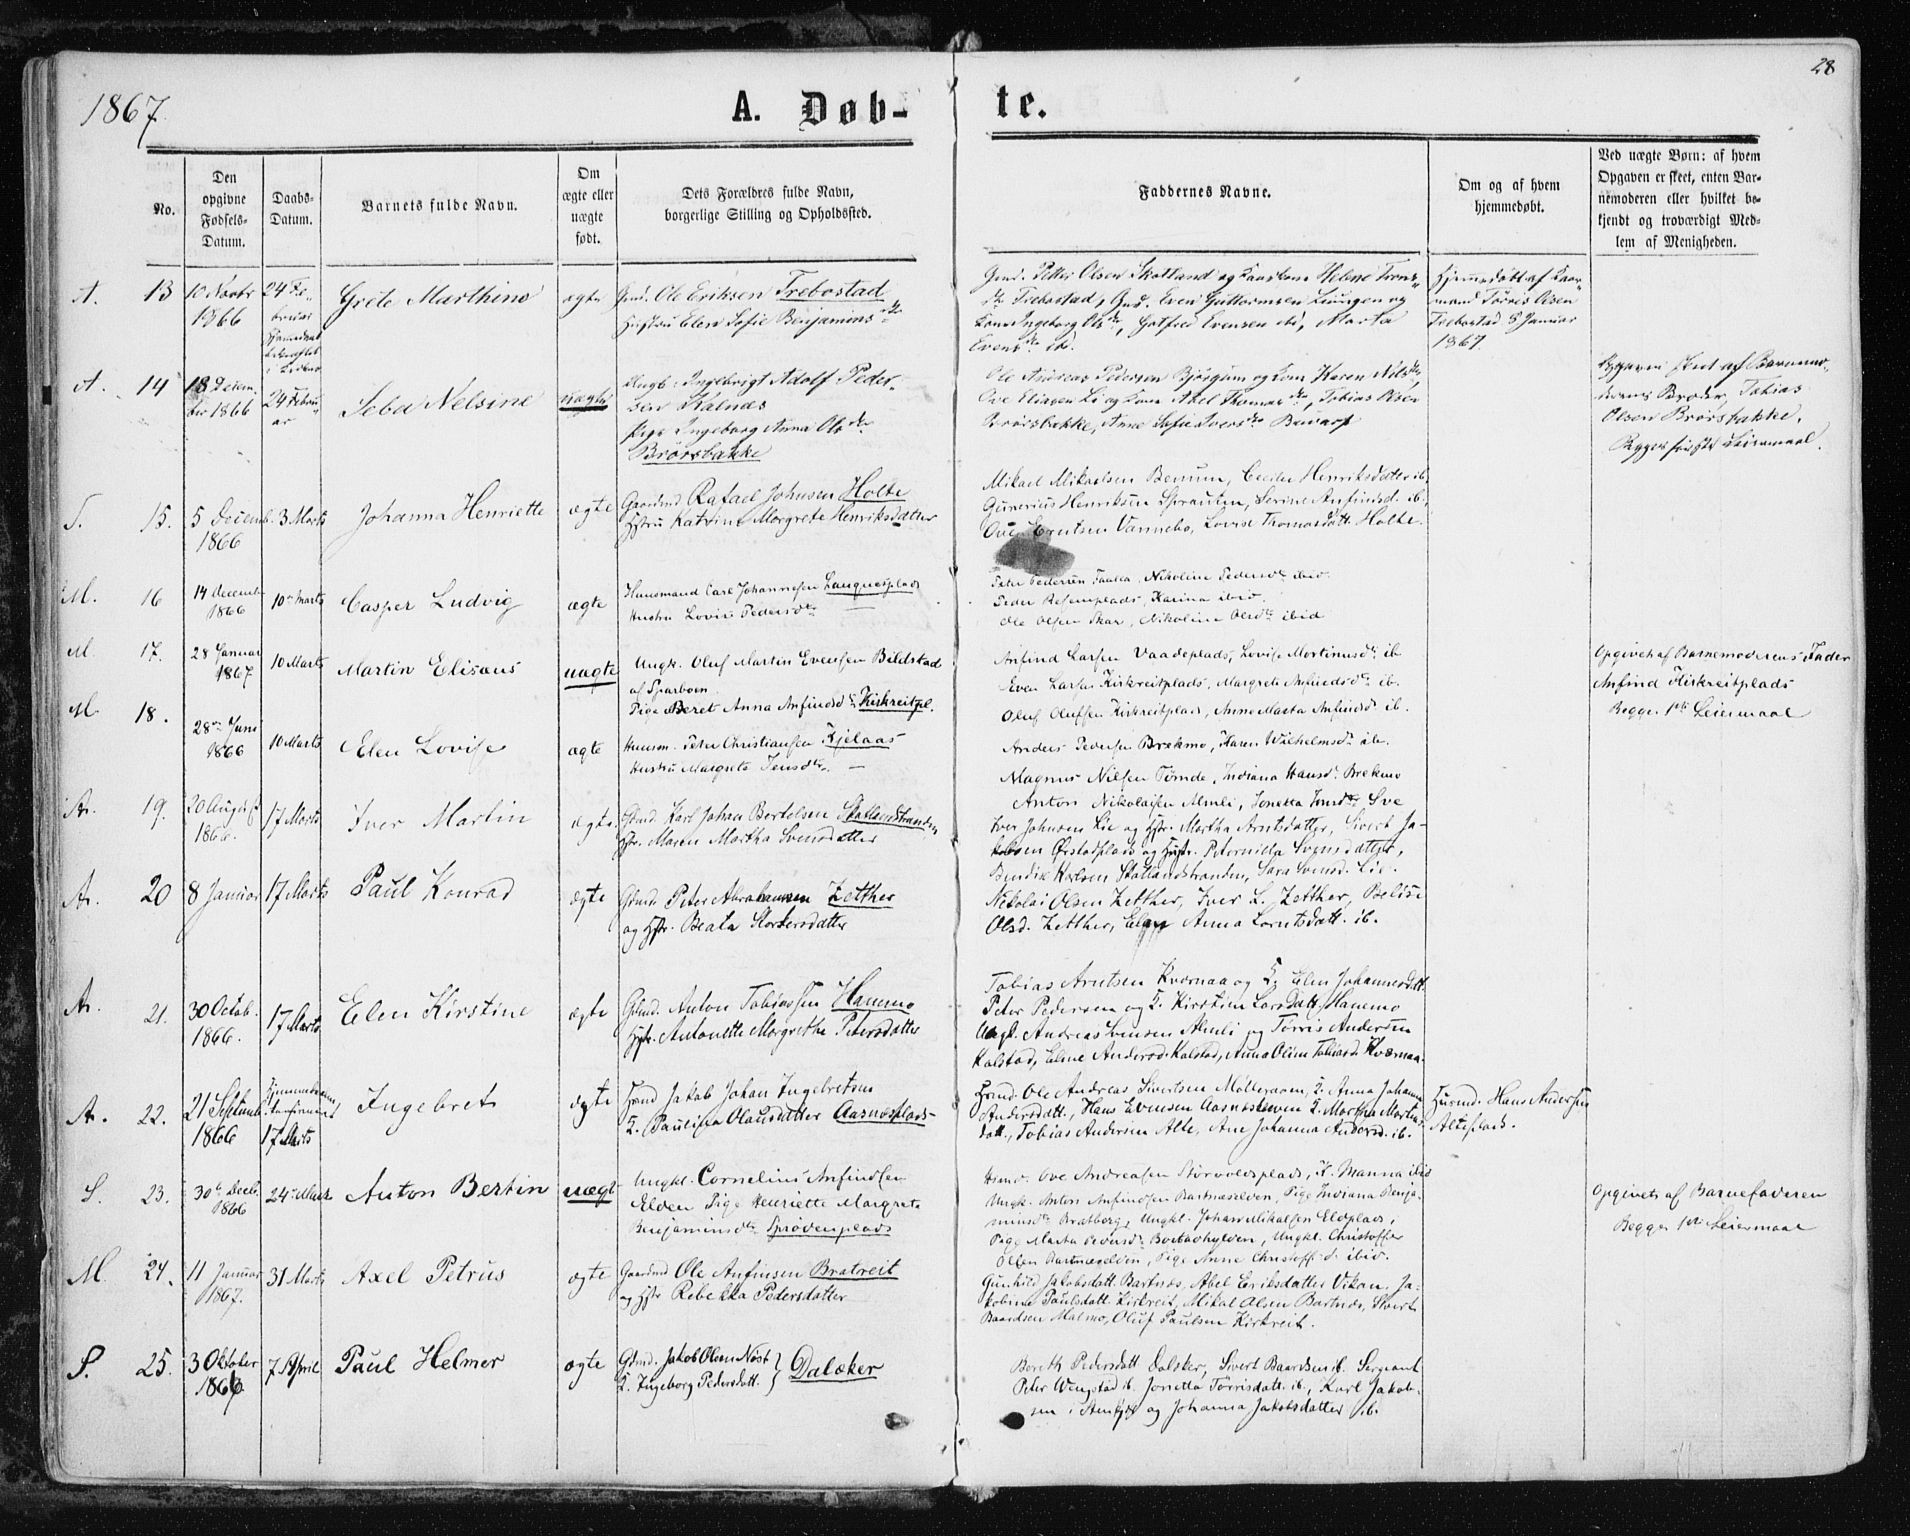 28
1867.
A. Døb-
te.
No.
Den opgivne Fødsels-Datum.
Daabs-Datum.
Barnets fulde Navn.
Om ægte eller uægte født.
Dets Forældres fulde Navn, borgerlige Stilling og Opholdssted.
Faddernes Navne.
Om og af hvem hjemmedøbt.
Ved uægte Børn: af hvem Opgaven er skeet, enten Barnemoderen eller hvilket bekjendt og troværdigt Medlem af Menigheden.
A. 13 10 Novbr 1866
24 Februar
Grete Marthine
ægte
Gmd. Ole Eriksen Trebostad
Hustru Elen Sofie Benjamins dtr
Gmd. Petter Olsen Skatland og Helene
Trebostad, Gmd. Even Guttormsen og
Kone Ingeborg Ols dtr, Gotfred Evensen ib, Marta
Evens dtr ib.
Hjemmedøbt af Gaardmand Tørris Olsen
Trebostad 8 Januar
1867.
A. 14 18 December 1866
24 Februar
Seba Nelsine
uægte
Ungk: Ingebrigt Adolf Pedersen Kalnæs
Pige Ingeborg Anna Ols dtr
Brørsbakke
Ole Andreas Pedersen Bjørgum og Kone Karen Nils dtr,
Ove Elingen Li og Kone Abel Thomas dtr, Tobias Olsen
Brørsbakke, Anne Sofie Ivers dtr
Opgaven skeet af Barnemoderens Broder Tobias
Olsen Brørsbakke.
Begges første Leiermaal.
S. 15. 5 Decemb. 1866
3 Marts
Johanna Henriette
ægte
Gaardmd Rafael Johnsen Holte
Hstru Katrine Margrete Henriksdatter
Mikael Mikaelsen Benum, Cecilie Henriksdatter ib,
Gunerius Henriksen Sprauten, Serine Anfinsd. ib.
Ove Erntsen Vannebo, Lovise Thomasdatt. Holte.
M. 16 14 December 1866
10 Marts
Casper Ludvig
ægte
Huusmand Carl Johannesen Langnesplads
Hustru Lovise Peders dtr
Peter Pedersen Faulia, Nikoline Peders dtr ibid.
Peder Besemplads, Karina ibid.
Ole Olsen Skar, Nikoline Ols dtr ibid
M. 17. 28 Januar 1867
10 Marts
Martin Elisæus
uægte
Ungk. Oluf Martin Evensen Bildstad
af Sparboen.
Pige Beret Anna Anfinds d. Kirkreitpl.
Anfind Larsen Vaadeplads, Lovise Mortinus d. ib
Even Larsen Kirkreitplads, Margrete Anfinds d. ib.
Oluf Olufsen Kirkreitplads, Anne Marta Anfinds d. ib.
Opgivet af Barnemoderens Fader
Anfind Kirkreitplads
Begges 1ste Leiermaal
M 18. 28 Juni 1866
10 Marts
Elen Lovise
ægte
Huusm. Peter Christiansen Kjelaas
Hustru Margrete Jens dtr. —
Anders Pedersen Brekmo, Karen Wilhelms d. ib.
Magnus Nilsen Tømde, Indiana Hans d. Brekmo
Anton Nikolaisen Almli, Jonetta Jens dtr
Ar. 19. 20 August 1866.
17 Marts
Iver Martin
ægte
Gdmd. Karl Johan Bertelsen Skatlandstranden
Hstr. Maren Martha Svensdatter
Iver Johnsen Lie og Hstr. Martha Arntsdatter, Sivert Jakobsen Ørstadplads og Hustr. Petornilla Svensdatter,
Bendik Karlsen Skatlandstranden, Sara Svensd. Lie.
Ar. 20 8 Januar
17 Marts
Paul Konrad
ægte
Gdmd Peter Abrahamsen Zetther
og Hstr. Beata Storkersdatter
Nikolai Olsen Zetther, Iver L. Zetther, Beldsi
Olsd. Zetther, Anna Lorntsdatt. ib.
Ar. 21. 30 Octob. 1866.
17 Marts
Elen Kirstine
ægte
Gdmd. Anton Tobiassen Hammo
Hstr. Antonette Margrethe Petersdatter
Tobias Arntsen Kværnaa og K. Elen Johannesdatt.
Peter Pedersen og K. Kirstien Larsdatt. Hammo
Ungk. Andreas Svensen Almli og Tørris Andersen
Kalstad, Eline Andersd. Kalstad, Anna Oline Tobiasd. Kværnaa
A. 22. 21 Septemb. 1866
17 Marts
Ingebret
ægte
Hmd Jakob Johan Ingebretsen
K. Paulina Olausdatter Aasnesplads
Hmd. Ole Andreas Sivertsen Mølleraaen, K. Anna Johanna
Andersdatt., Hans Evensen Aasnesleiren K. Martha Martensdatt., Tobias Andersen Alte, Ane Johanna Andersd. ib.
Huusmd. Hans Andersen
Alteplads.
S. 23. 30 Decb. 1866
24 Marts
Anton Bertin
uægte
Ungkl. Cornelius Anfindsen
Elden Pige Henriette Margrete
Benjamins dtr Sprødenplads
Huusmd. Ove Andreasen Størvoldsplads, K. Manna ibid
Ungk. Anton Anfindsen Bartnæselden, Pige Indiana Benjamins dtr Bratberg, Ungkl. Johan Mikalsen Eldplads,
Pige Marta Peders dtr, Ungkl. Christoffer
Olsen Bartnæselden, Pige Anne Christoff. d. ibid.
Opgivet af Barnefaderen
Begges 1ste Leiermaal
M. 24. 11 Januar 1867.
31 Marts
Axel Petrus
ægte
Gaardmd Ole Anfinsen Bratreit
og Hstr Rebekka Pedersdatter
Gunhild Jakobsdatt. Bartnæs, Abel Eriksdatter Vikan, Jakobine Paulsdatt. Kirkreit, Mikal Olsen Bartnæs, Sivert
Baardsen Malmo, Oluf Paulsen Kirkreit.
S. 25. 3 Oktober 1866
7 April
Paul Helmer
ægte
Gdmd. Jakob Olsen Nøst
K. Ingeborg Pedersdatt. } Dalæker
Bereth Pedersdatt Dalæker, Sivert Baardsen ib. Sergeant
Peter Wengstad ib. Jonetta Tørrisdatt. ib., Karl Jakobsen i Stenkjær og Johanna Jakobsdatter ib.